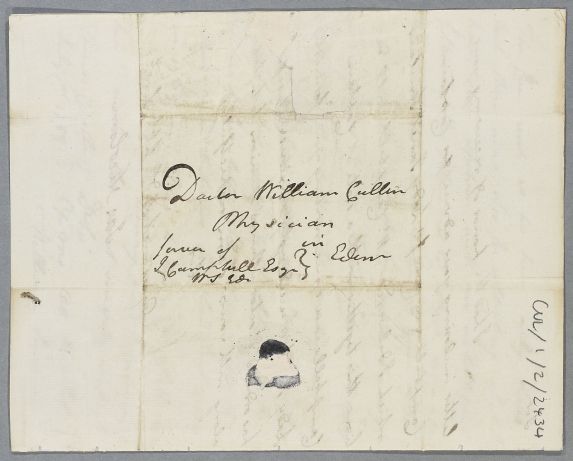 Doctor William Cullen
Physician
in Edinr
favor of
J Campbell Esqr
WS Edr
CUL/1/2/2434